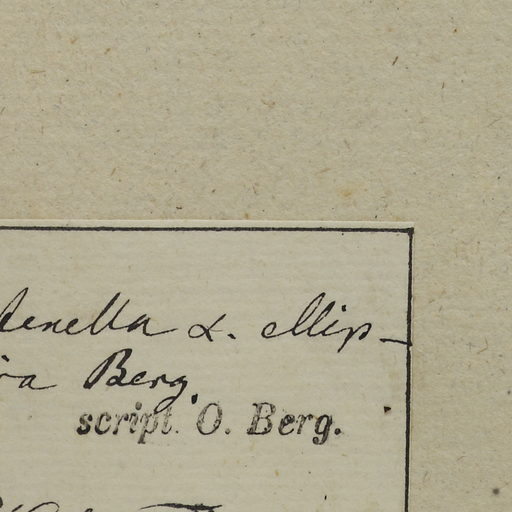 tenella α. ellip-
ra Berg.
script. O. Berg.